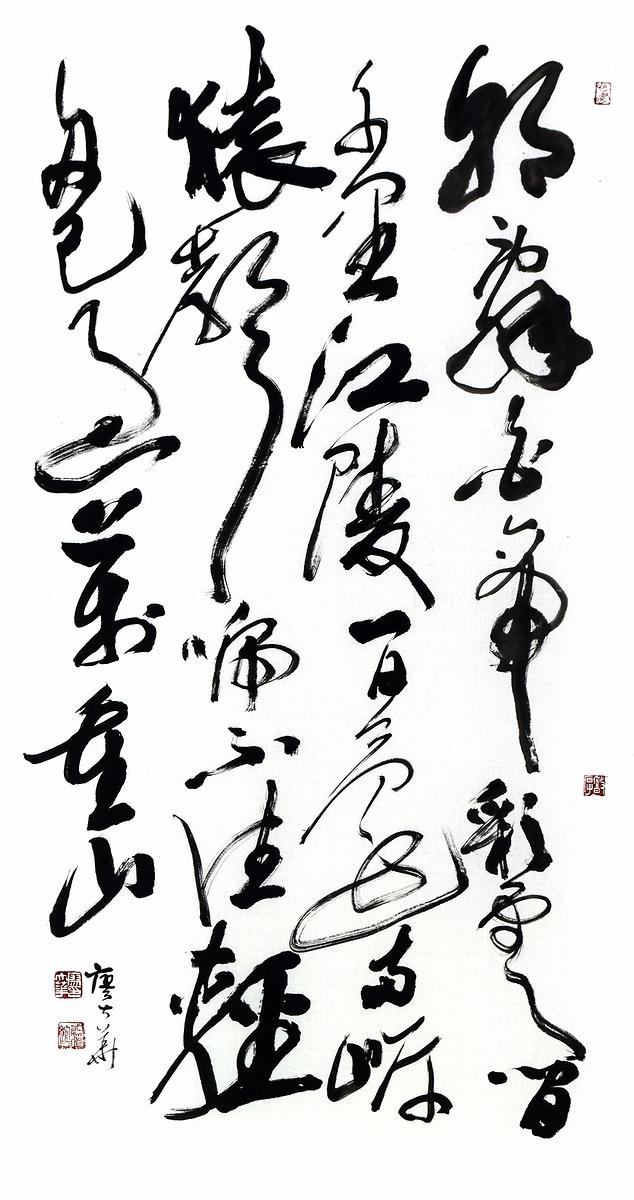 朝辭白帝彩雲間
千里江陵一日還兩岸
猿聲啼不住輕
舟已過萬重山